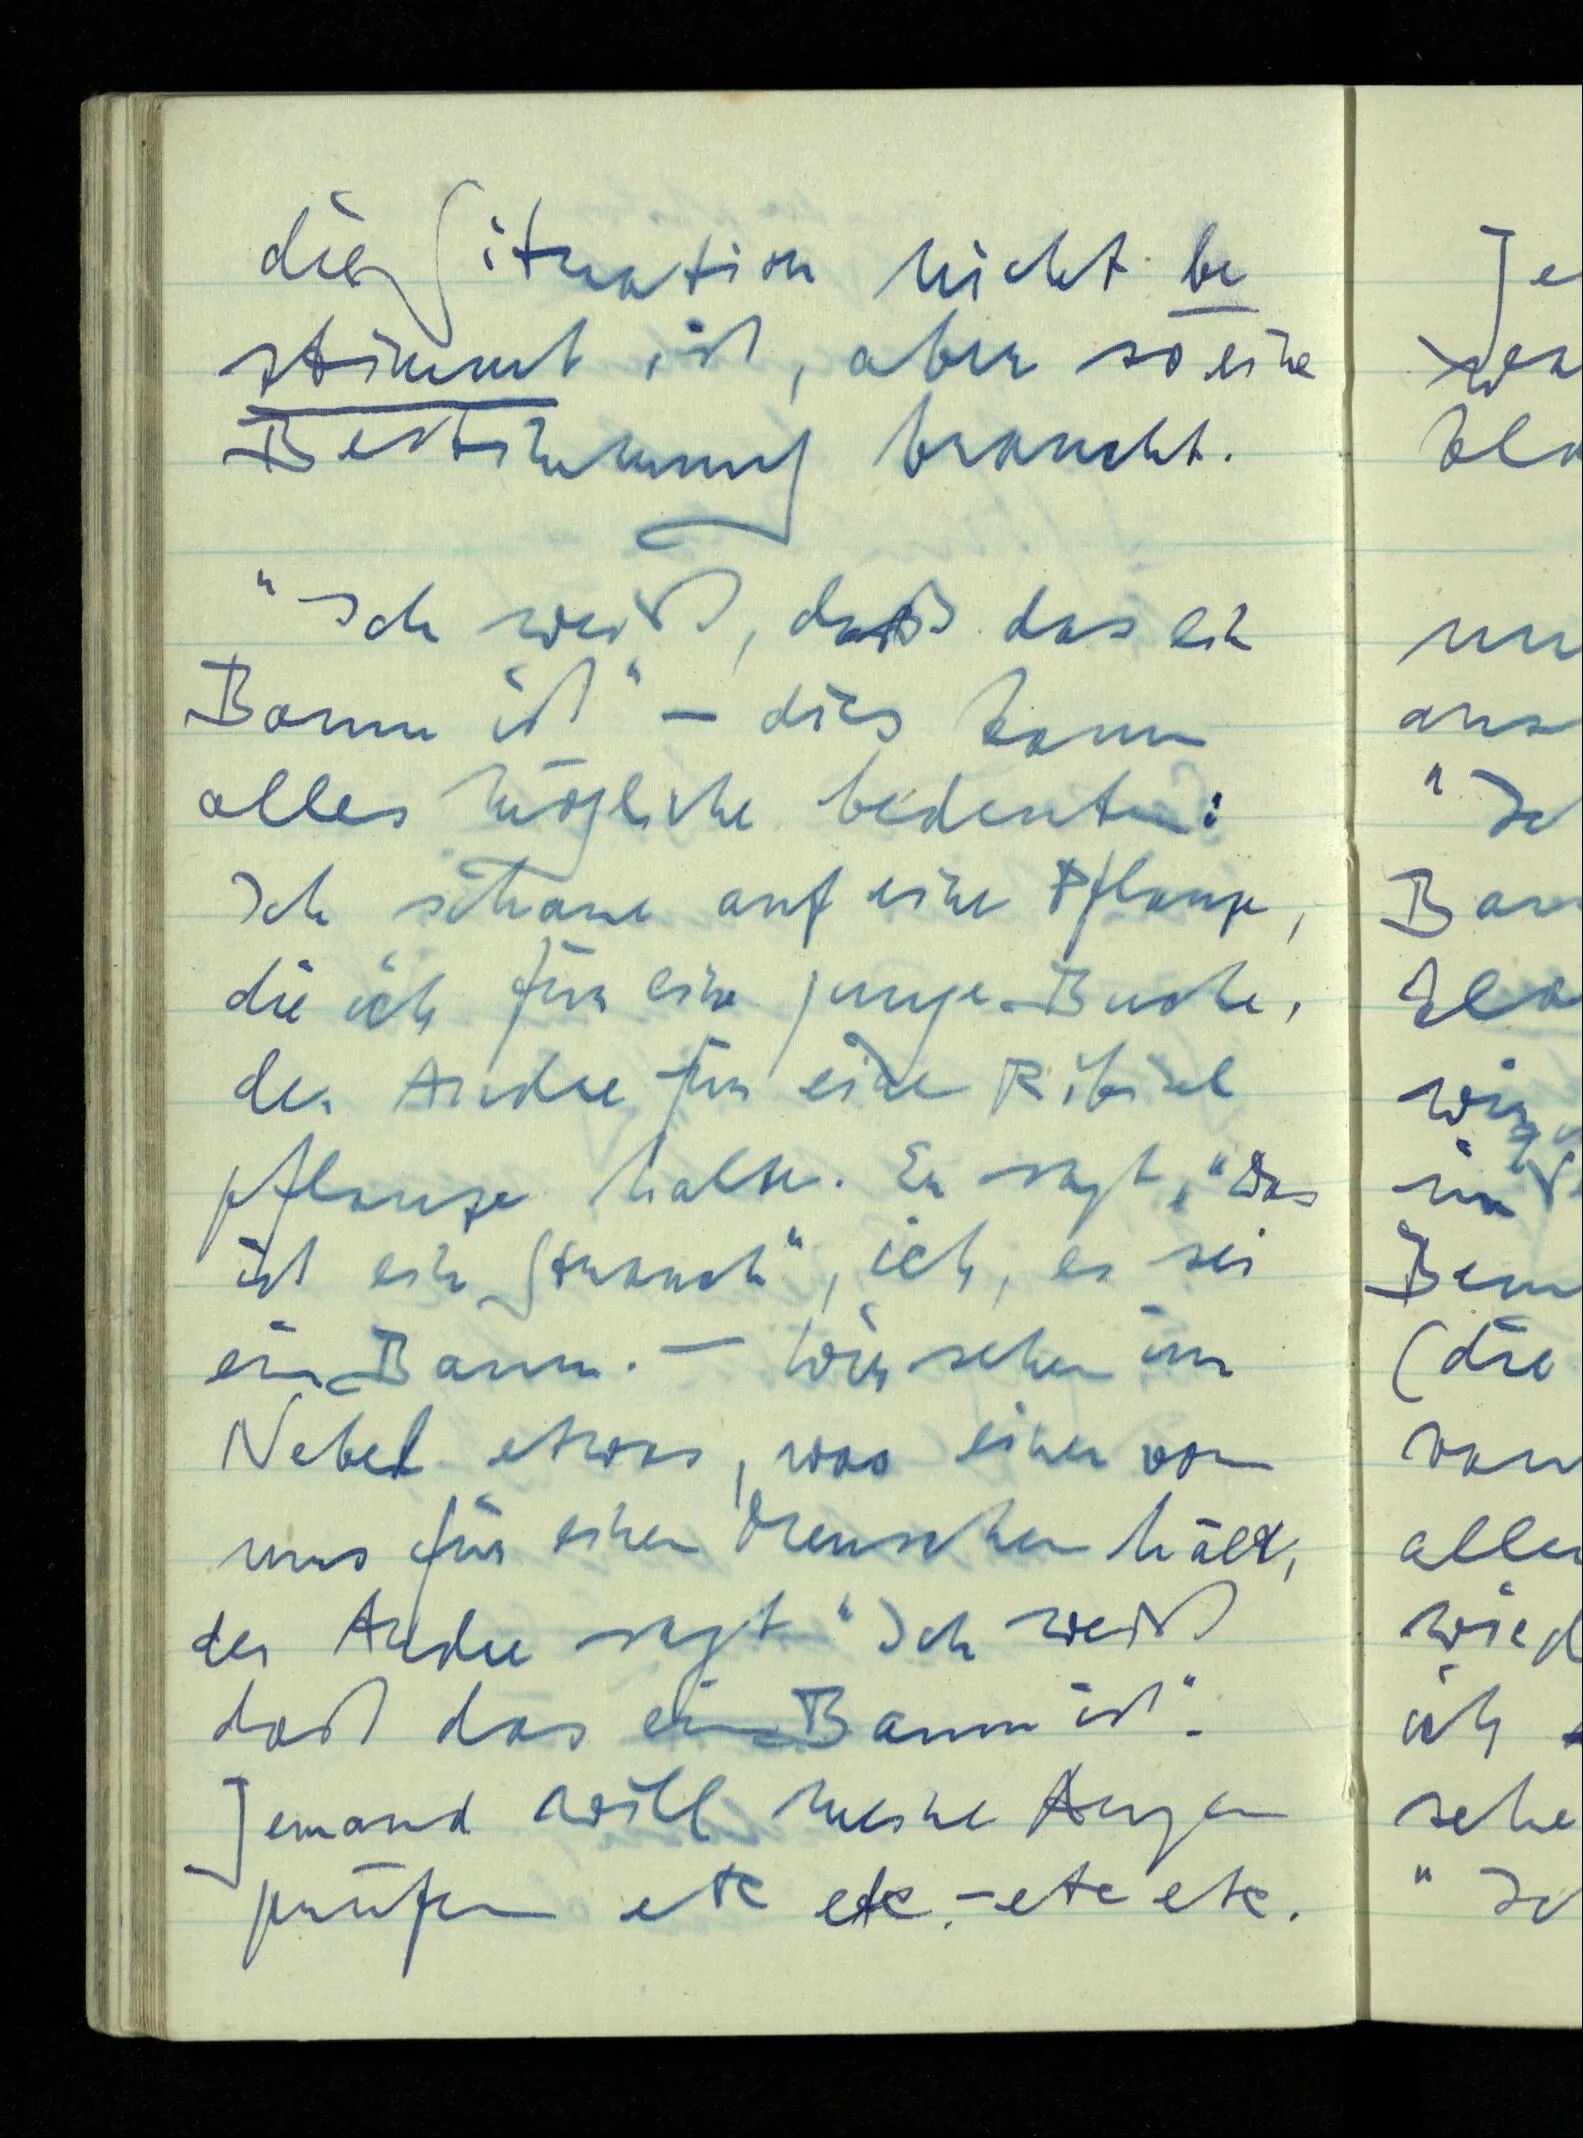 die Situation nicht be
stimmt ist, aber so eine
Bestimmung braucht.
"Ich weiß, daß das ein
Baum ist" – dies kann
alles mögliche bedeuten:
Ich schaue auf eine Pflanze,
die ich für eine junge Buche,
der Andre für eine Ribisel
pflanze hält. Er sagt, "Das
ist ein Strauch", ich, es sei
ein Baum. – Wir sehen im
Nebel etwas, was einer von
uns für einen Menschen hält,
der Andre sagt "Ich weiß
daß das ein Baum ist".
Jemand will meine Augen
prüfen etc etc. – etc etc.
Je
bla
"Ich
(die